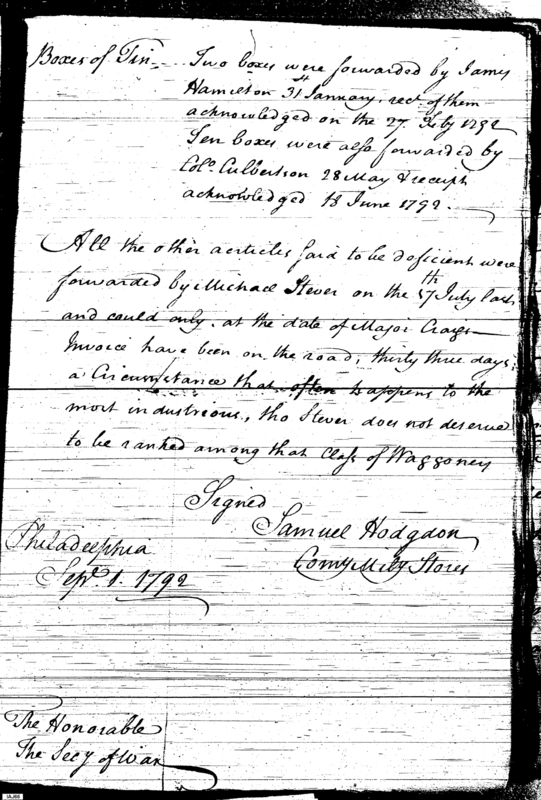 Boxes of Tin— Two boxes were forwarded by James
Hamilton 31st January, rect of them
acknowledged on the 27. Feby 1792
Ten boxes were also forwarded by
Colo. Culbertson 28 May & receipt
acknowledged 18 June 1792.
All the other articles said to be deficient were
forwarded by Michael Stever on the 7th July last,
and could only, at the date of Major Craigs
Invoice have been on the road, thirty three days;
a Circumstance that often happens to the
most industrious, tho Stever does not deserve
to be ranked among that Class of Waggoners
Signed
Samuel Hodgdon
Comy Mily Stores
Philadelphia
Sept. 1. 1792
The Honorable
The Secy of War